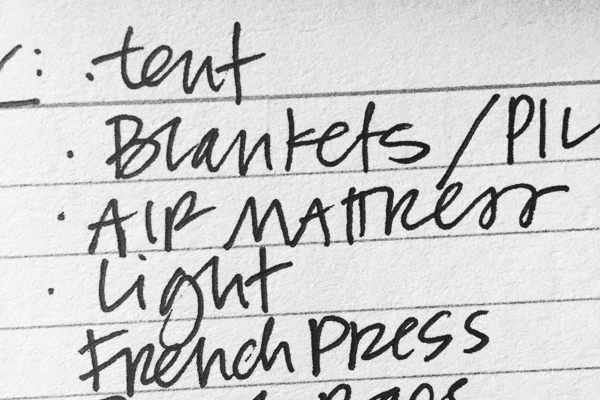 : · tent
· Blankets / PIL
· AIR MATTRESS
· Light
French Press